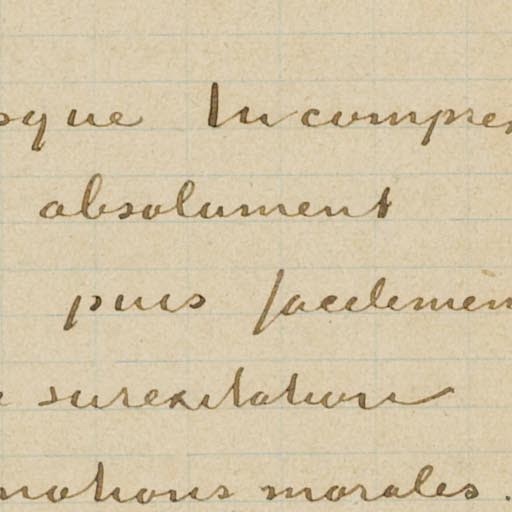 sque Incompre
absolument
puis facilemen
surexitation
motions morales.